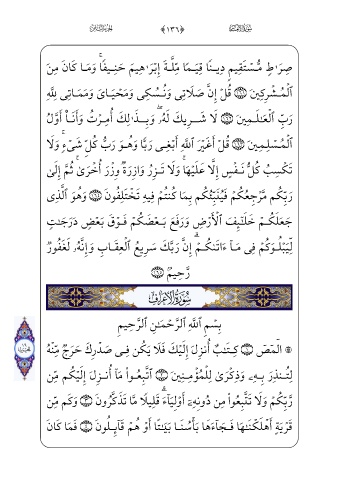 سورة الأنعام ﴿١٣٦﴾ الجزء الثامن
صِرَٰطٍ مُّسْتَقِيمٍ دِينًا قِيَمًا مِّلَّةَ إِبْرَٰهِيمَ حَنِيفًا ۚ وَمَا كَانَ مِنَ
ٱلْمُشْرِكِينَ ١٦١ قُلْ إِنَّ صَلَاتِى وَنُسُكِى وَمَحْيَاىَ وَمَمَاتِى لِلَّهِ
رَبِّ ٱلْعَٰلَمِينَ ١٦٢ لَا شَرِيكَ لَهُۥ ۖ وَبِذَٰلِكَ أُمِرْتُ وَأَنَا۠ أَوَّلُ
ٱلْمُسْلِمِينَ ١٦٣ قُلْ أَغَيْرَ ٱللَّهِ أَبْغِى رَبًّا وَهُوَ رَبُّ كُلِّ شَىْءٍ ۚ وَلَا
تَكْسِبُ كُلُّ نَفْسٍ إِلَّا عَلَيْهَا ۚ وَلَا تَزِرُ وَازِرَةٌ وِزْرَ أُخْرَىٰ ۚ ثُمَّ إِلَىٰ
رَبِّكُم مَّرْجِعُكُمْ فَيُنَبِّئُكُم بِمَا كُنتُمْ فِيهِ تَخْتَلِفُونَ ١٦٤ وَهُوَ ٱلَّذِى
جَعَلَكُمْ خَلَٰٓئِفَ ٱلْأَرْضِ وَرَفَعَ بَعْضَكُمْ فَوْقَ بَعْضٍ دَرَجَٰتٍ
لِّيَبْلُوَكُمْ فِى مَآ ءَاتَىٰكُمْ ۗ إِنَّ رَبَّكَ سَرِيعُ ٱلْعِقَابِ وَإِنَّهُۥ لَغَفُورٌ
رَّحِيمٌۢ ١٦٥
سُورَةُ الأَعْرَاف
بِسْمِ ٱللَّهِ ٱلرَّحْمَٰنِ ٱلرَّحِيمِ
۞ الٓمٓصٓ ١ كِتَٰبٌ أُنزِلَ إِلَيْكَ فَلَا يَكُن فِى صَدْرِكَ حَرَجٌ مِّنْهُ
لِتُنذِرَ بِهِۦ وَذِكْرَىٰ لِلْمُؤْمِنِينَ ٢ ٱتَّبِعُوا۟ مَآ أُنزِلَ إِلَيْكُم مِّن
رَّبِّكُمْ وَلَا تَتَّبِعُوا۟ مِن دُونِهِۦٓ أَوْلِيَآءَ ۗ قَلِيلًا مَّا تَذَكَّرُونَ ٣ وَكَم مِّن
قَرْيَةٍ أَهْلَكْنَٰهَا فَجَآءَهَا بَأْسُنَا بَيَٰتًا أَوْ هُمْ قَآئِلُونَ ٤ فَمَا كَانَ